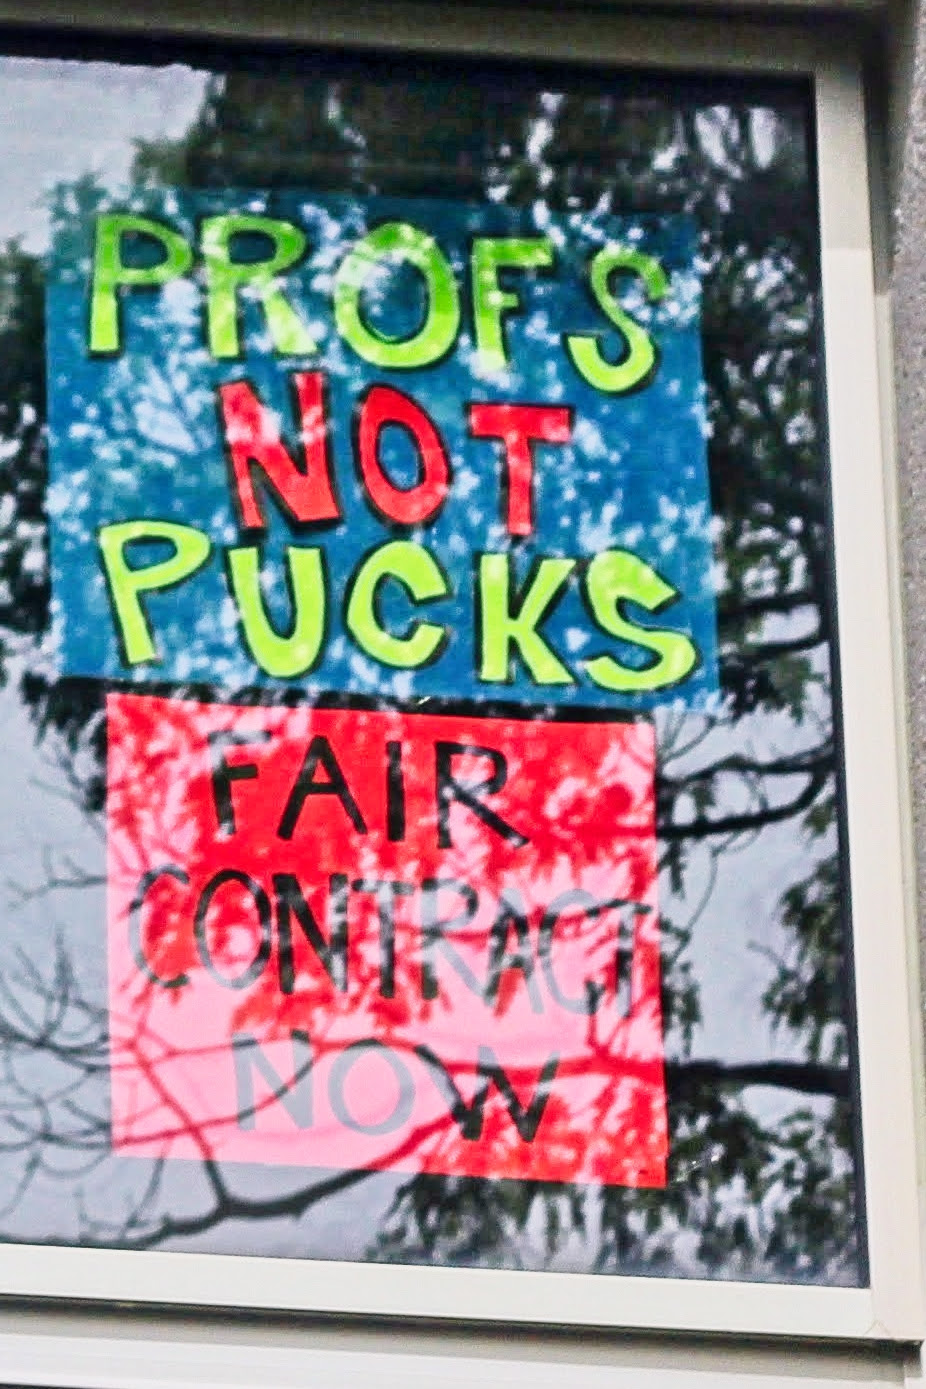 PROFS
NOT
PUCKS
FAIR
CONTRACT
NOW